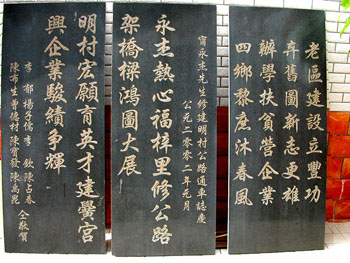 老區建設立豐功
革舊圖新志更雄
辦學扶貧營企業
四鄉黎庶沐春風
甯永杰先生修建明村公路通車誌慶
公元二〇〇二年元月
永杰熱心福梓里修公路
架橋樑鴻圖大展
明村宏願育英才建黌宮
興企業駿績爭輝
李郁 楊子儒 李欽 陳占春
陳布生 曾德材 陳寶發 陳禹崑
仝敬賀